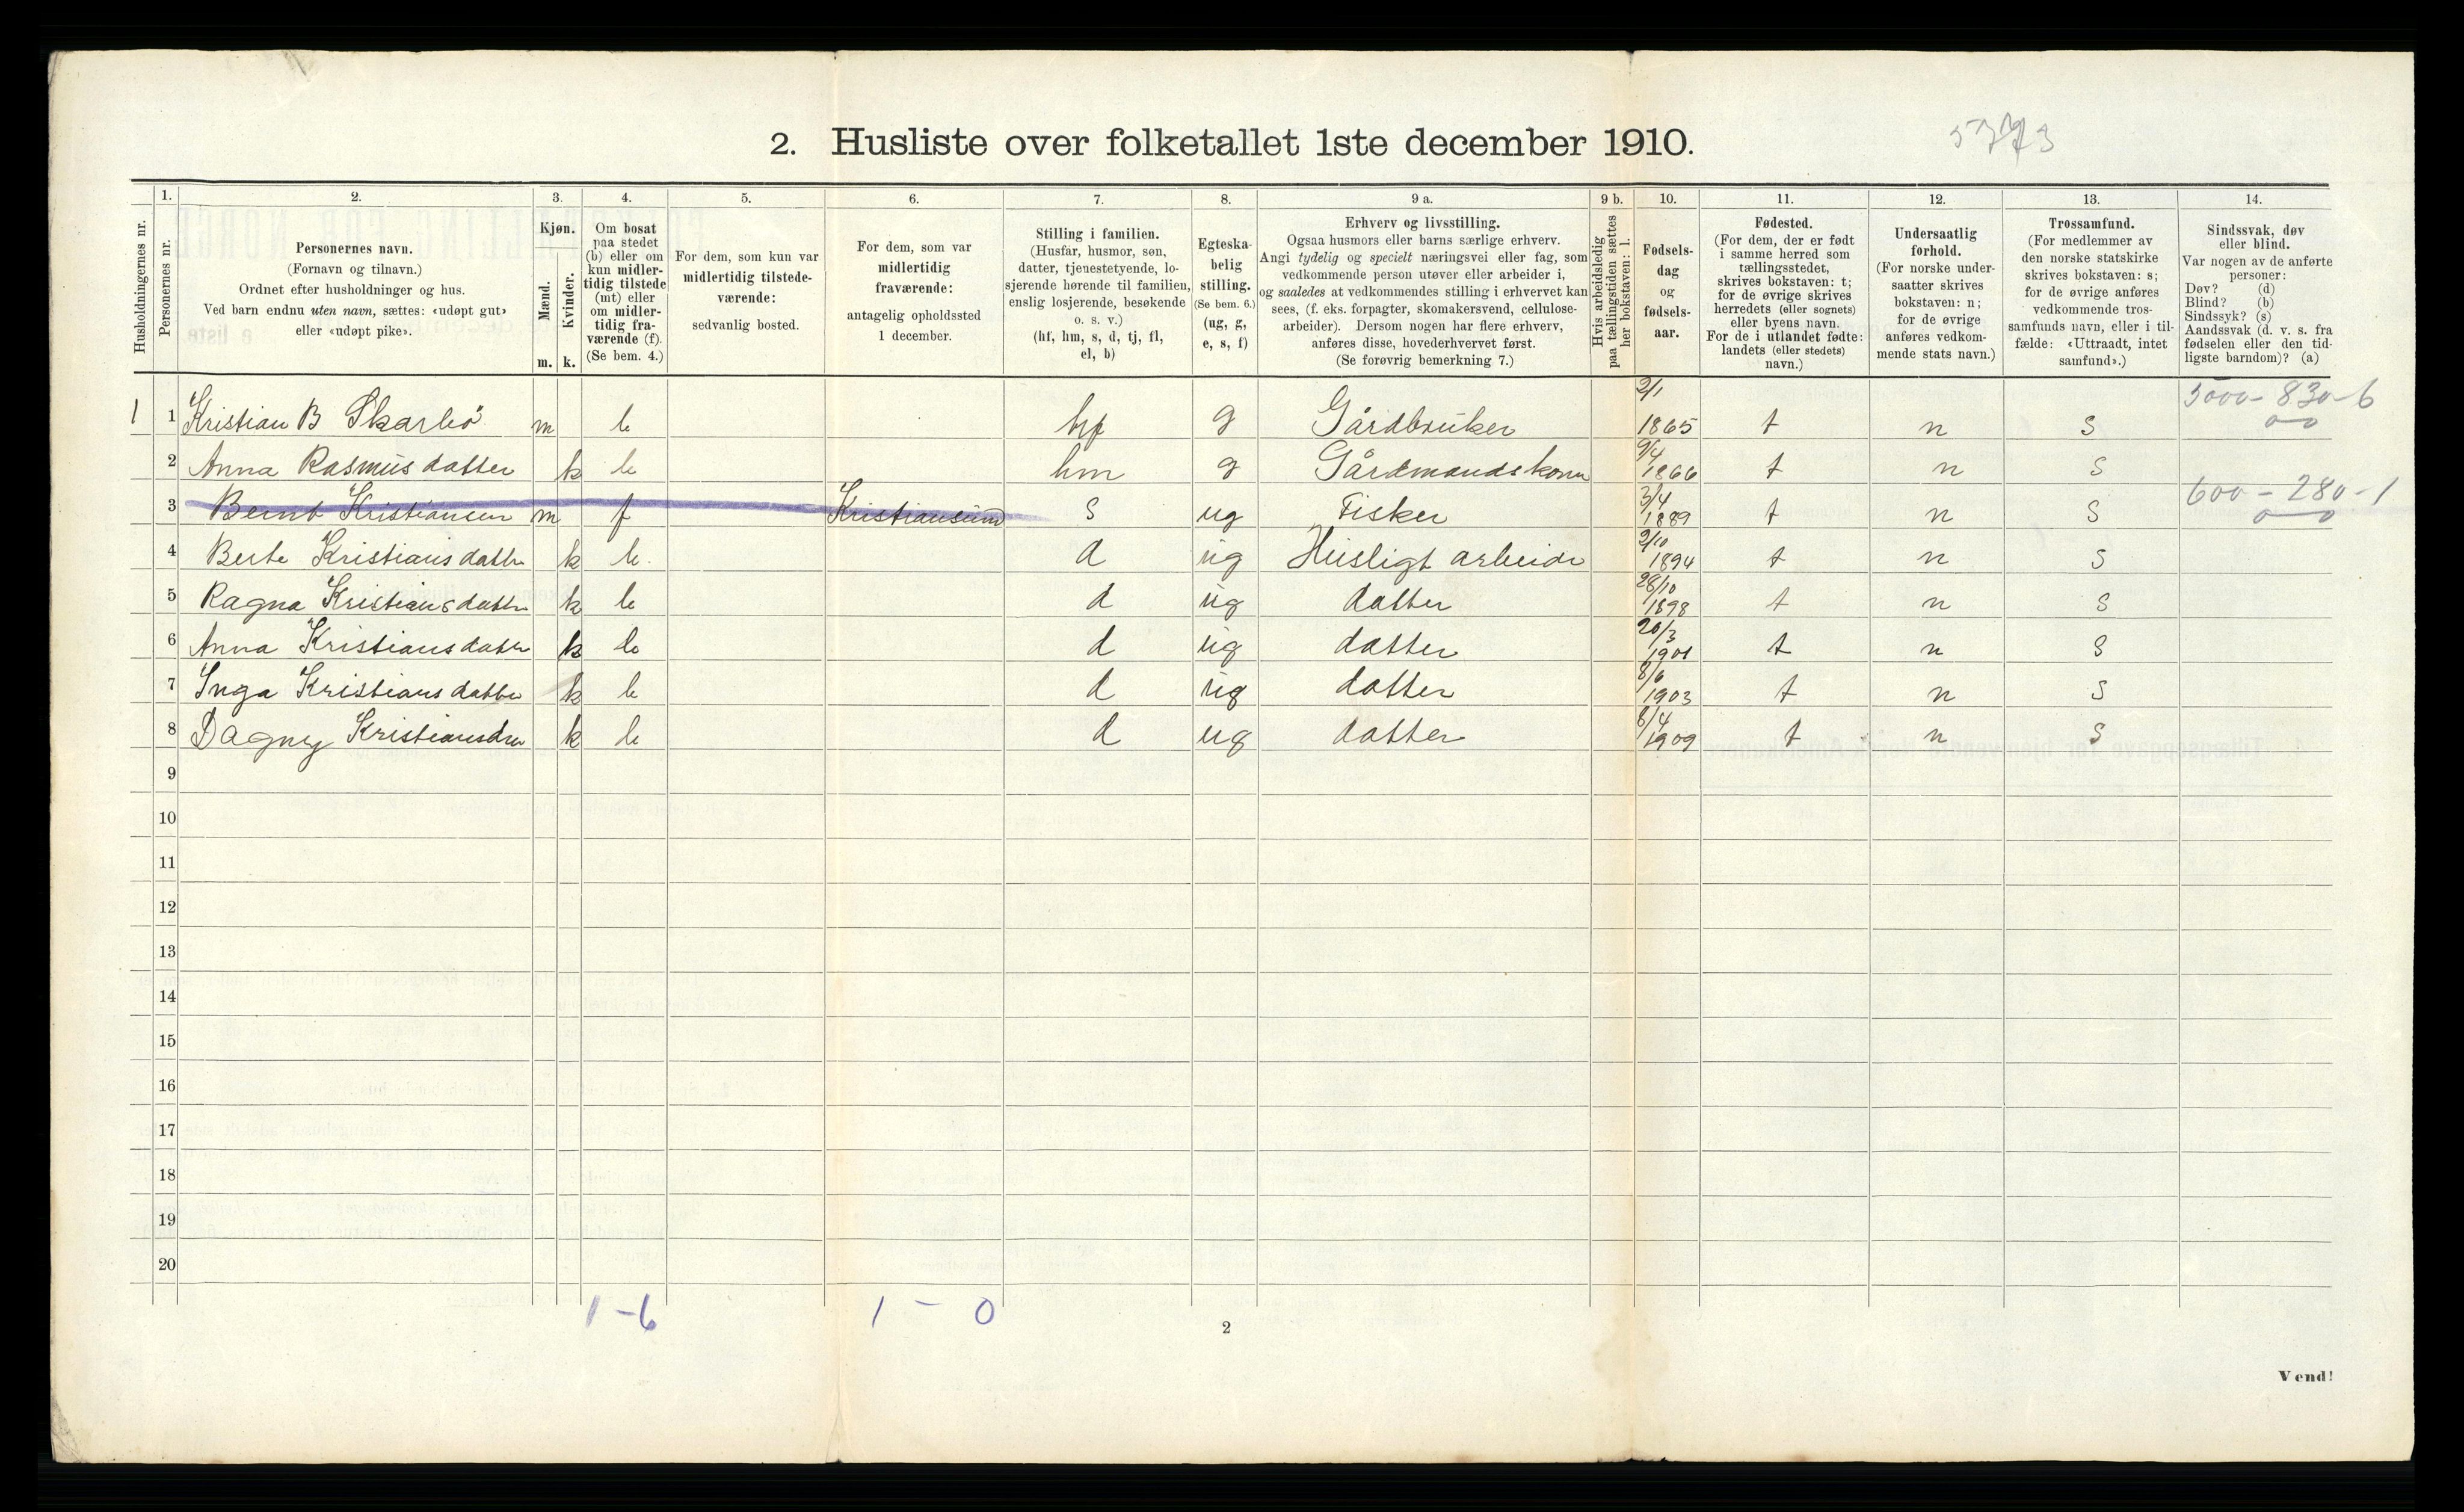 2. Husliste over folketallet 1ste december 1910.
5773
Husholdningernes nr.
1.
Personernes nr.
2.
Personernes navn.
(Fornavn og tilnavn.)
Ordnet efter husholdninger og hus.
Ved barn endnu uten navn, sættes: «udøpt gut»
eller «udøpt pike».
3.
Kjøn.
Mænd.
Kvinder.
m. k.
4.
Om bosat
paa stedet
(b) eller om
kun midler-
tidig tilstede
(mt) eller
om midler-
tidig fra-
værende (f).
(Se bem. 4.)
5.
For dem, som kun var
midlertidig tilstede-
værende:
sedvanlig bosted.
6.
For dem, som var
midlertidig
fraværende:
antagelig opholdssted
1 december.
7.
Stilling i familien.
(Husfar, husmor, søn,
datter, tjenestetyende, lo-
sjerende hørende til familien,
enslig losjerende, besøkende
o. s. v.)
(hf, hm, s, d, tj, fl,
el, b)
8.
Egteska-
belig
stilling.
(Se bem. 6.)
(ug, g,
e, s, f)
9 a.
Erhverv og livsstilling.
Ogsaa husmors eller barns særlige erhverv.
Angi tydelig og specielt næringsvei eller fag, som
vedkommende person utøver eller arbeider i,
og saaledes at vedkommendes stilling i erhvervet kan
sees, (f. eks. forpagter, skomakersvend, cellulose-
arbeider). Dersom nogen har flere erhverv,
anføres disse, hovederhvervet først.
(Se forøvrig bemerkning 7.)
9 b.
Hvis arbeidsledig
paa tællingstiden sættes
her bokstaven: l.
10.
Fødsels-
dag
og
fødsels-
aar.
11.
Fødested.
(For dem, der er født
i samme herred som
tællingsstedet,
skrives bokstaven: t;
for de øvrige skrives
herredets (eller sognets)
eller byens navn.
For de i utlandet fødte:
landets (eller stedets)
navn.)
12.
Undersaatlig
forhold.
(For norske under-
saatter skrives
bokstaven: n;
for de øvrige
anføres vedkom-
mende stats navn.)
13.
Trossamfund.
(For medlemmer av
den norske statskirke
skrives bokstaven: s;
for de øvrige anføres
vedkommende tros-
samfunds navn, eller i til-
fælde: «Uttraadt, intet
samfund».)
14.
Sindssvak, døv
eller blind.
Var nogen av de anførte
personer:
Døv? (d)
Blind? (b)
Sindssyk? (s)
Aandssvak (d. v. s. fra
fødselen eller den tid-
ligste barndom)? (a)
1 1 Kristian B Skarbö m b hf g Gårdbruker 2/1 1865 t n s 5000 - 830 - 6
2 Anna Rasmusdatter k b hm g Gårdmandskone 9/4 1866 t n s
3 Bernt Kristiansen m f Kristiansund s ug Fisker 3/4 1889 t n s 600 - 280 - 1
4 Berte Kristiansdatter k b. d ug Husligt arbeide 2/10 1894 t n s
5 Ragna Kristiansdatter k b d ug datter 28/10 1898 t n s
6 Anna Kristiansdatter k b d ug datter 20/3 1901 t n s
7 Inga Kristiansdatter k b d ug datter 8/6 1903 t n s
8 Dagny Kristiansdtr k b d ug datter 8/4 1909 t n s
9
10
11
12
13
14
15
16
17
18
19
20
1 - 6 1 - 0
2
Vend!